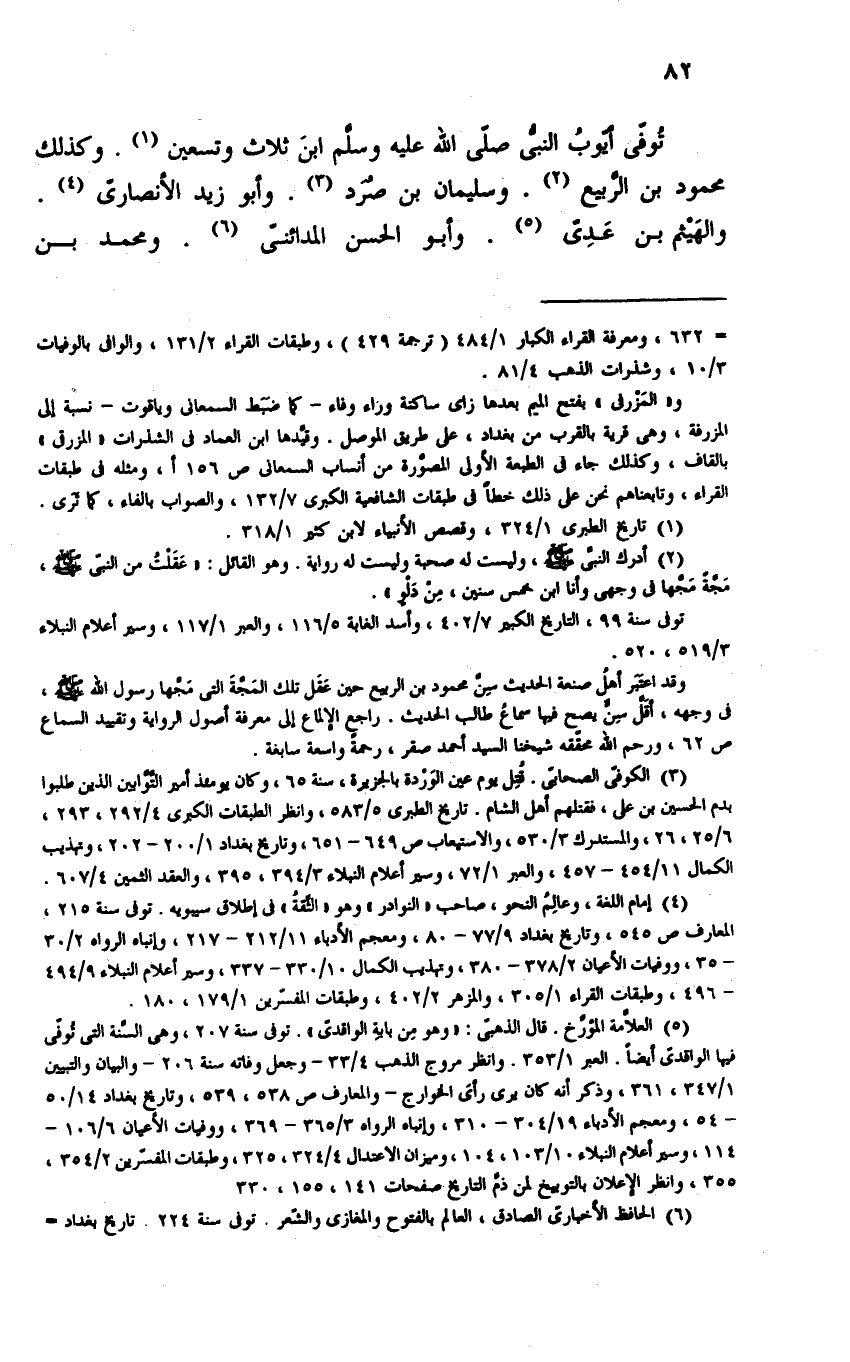 ٨٢
تُوفّى أيّوبُ النبىُّ صلّى الله عليه وسلَّم ابنَ ثلاث وتسعين (١) . وكذلك
محمود بن الرَّبيع (٢) . وسليمان بن صُرَد (٣) . وأبو زيد الأنصارىّ (٤) .
والهَيْثم بـن عَـدِىّ (٥) . وأبـو الحسن المدائنـىّ (٦) . ومحمـد بـــن
= ٦٣٢ ، ومعرفة القراء الكبار ٤٨٤/١ ( ترجمة ٤٢٩ ) ، وطبقات القراء ١٣١/٢ ، والوافى بالوفيات
١٠/٣ ، وشذرات الذهب ٨١/٤ .
و« المَزْرفى » بفتح الميم بعدها زاى ساكنة وراء وفاء – كما ضبَط السمعانى وياقوت – نسبة إلى
المزرفة ، وهى قرية بالقرب من بغداد ، على طريق الموصل . وقيَّدها ابن العماد فى الشذرات « المزرق »
بالقاف ، وكذلك جاء فى الطبعة الأولى المصوَّرة من أنساب السمعانى ص ١٥٦ أ ، ومثله فى طبقات
القراء ، وتابعناهم نحن على ذلك خطأً فى طبقات الشافعية الكبرى ١٣٢/٧ ، والصواب بالفاء ، كما تَرى .
(١) تاريخ الطبرى ٣٢٤/١ ، وقصص الأنبياء لابن كثير ٣١٨/١ .
(٢) أدرك النبىَّ ﷺ ، وليست له صحبة وليست له رواية . وهو القائل : « عَقَلْتُ من النبىّ ﷺ ،
مَجَّةً مَجَّها فى وجهى وأنا ابن خمس سنين ، مِنْ دَلْوٍ » .
توفى سنة ٩٩ ، التاريخ الكبير ٤٠٢/٧ ، وأسد الغابة ١١٦/٥ ، والعبر ١١٧/١ ، وسير أعلام النبلاء
٥١٩/٣ ، ٥٢٠ .
وقد اعتَبَر أهلُ صنعة الحديث سِنَّ محمود بن الربيع حين عَقَل تلك المَجَّةَ التى مَجَّها رسول الله ﷺ ،
فى وجهه ، أقَلَّ سِنٍّ يصح فيها سماعُ طالب الحديث . راجع الإلماع إلى معرفة أصول الرواية وتقييد السماع
ص ٦٢ ، ورحم الله محقّقه شيخنا السيد أحمد صقر ، رحمةً واسعة سابغة .
(٣) الكوفىّ الصحابىّ . قُتِل يوم عين الوَرْدة بالجزيرة ، سنة ٦٥ ، وكان يومئذ أمير التَّوَّابين الذين طلبوا
بدم الحسين بن على ، فقتلهم أهل الشام . تاريخ الطبرى ٥٨٣/٥ ، وانظر الطبقات الكبرى ٢٩٢/٤ ، ٢٩٣ ،
٢٥/٦ ، ٢٦ ، والمستدرك ٥٣٠/٣ ، والاستيعاب ص ٦٤٩ – ٦٥١ ، وتاريخ بغداد ٢٠٠/١ – ٢٠٢ ، وتهذيب
الكمال ٤٥٤/١١ – ٤٥٧ ، والعبر ٧٢/١ ، وسير أعلام النبلاء ٣٩٤/٣ ، ٣٩٥ ، والعقد الثمين ٦٠٧/٤ .
(٤) إمام اللغة ، وعالِمُ النحو ، صاحب « النوادر » وهو « الثِّقةُ » فى إطلاق سيبويه . توفى سنة ٢١٥ ،
المعارف ص ٥٤٥ ، وتاريخ بغداد ٧٧/٩ – ٨٠ ، ومعجم الأدباء ٢١٢/١١ – ٢١٧ ، وإنباه الرواه ٣٠/٢
– ٣٥ ، ووفيات الأعيان ٣٧٨/٢ – ٣٨٠ ، وتهذيب الكمال ٣٣٠/١٠ – ٣٣٧ ، وسير أعلام النبلاء ٤٩٤/٩
– ٤٩٦ ، وطبقات القراء ٣٠٥/١ ، والمزهر ٤٠٢/٢ ، وطبقات المفسّرين ١٧٩/١ ، ١٨٠ .
(٥) العلاّمة المؤرِّخ . قال الذهبىّ : « وهو مِن بابةِ الواقدىّ » . توفى سنة ٢٠٧ ، وهى السَّنة التى تُوفّى
فيها الواقدىّ أيضاً . العبر ٣٥٣/١ . وانظر مروج الذهب ٣٣/٤ – وجعل وفاته سنة ٢٠٦ – والبيان والتبيين
٣٤٧/١ ، ٣٦١ ، وذكر أنه كان يرى رأىَ الخوارج – والمعارف ص ٥٣٨ ، ٥٣٩ ، وتاريخ بغداد ٥٠/١٤
– ٥٤ ، ومعجم الأدباء ٣٠٤/١٩ – ٣١٠ ، وإنباه الرواه ٣٦٥/٣ – ٣٦٩ ، ووفيات الأعيان ١٠٦/٦ –
١١٤ ، وسير أعلام النبلاء ١٠٣/١٠ ، ١٠٤ ، وميزان الاعتدال ٣٢٤/٤ ، ٣٢٥ ، وطبقات المفسّرين ٣٥٤/٢ ،
٣٥٥ ، وانظر الإعلان بالتوبيخ لمن ذمَّ التاريخ صفحات ١٤١ ، ١٥٥ ، ٣٣٠
(٦) الحافظ الأخبارىّ الصادق ، العالم بالفتوح والمغازى والشّعر . توفى سنة ٢٢٤ . تاريخ بغداد =